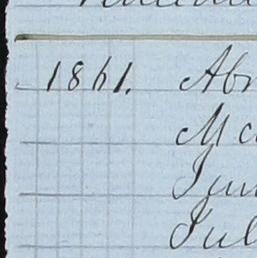 1861. Abr
Ma
Jun
Jul